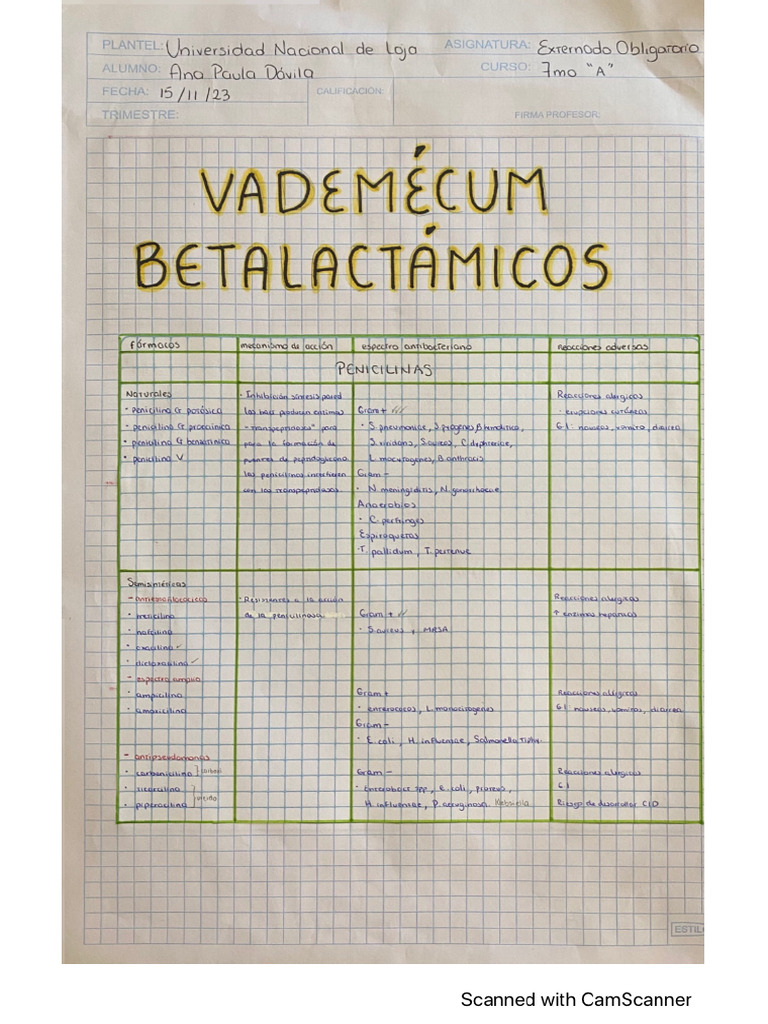 PLANTEL: Universidad Nacional de Loja ASIGNATURA: Externado Obligatorio
ALUMNO: Ana Paula Dávila CURSO: 7mo "A"
FECHA: 15/11/23 CALIFICACIÓN:
TRIMESTRE: FIRMA PROFESOR:
VADEMÉCUM
BETALACTÁMICOS
fármacos mecanismo de acción espectro antibacteriano reacciones adversas
PENICILINAS
Naturales
• penicilina G potásica
• penicilina G procaínica
• penicilina G benzatínica
• penicilina V
• Inhibición síntesis pared
las bact producen enzimas
"transpeptidasas" para
para la formación de
puentes de peptidoglicano
las penicilinas interfieren
con las transpeptidasas.
Gram +
• S. pneumoniae, S. pyogenes β hemolítico,
S. viridans, S. aureus, C. diphteriae,
L. monocytogenes, B. anthracis
Gram -
• N. meningiditis, N. gonorrhoeae
Anaerobios
• C. perfringes
Espiroquetas
• T. pallidum, T. pertenue
Reacciones alérgicas
• erupciones cutáneas
GI: nauseas, vómito, diarrea
Semisintéticas
- antiestafilocócicas
• meticilina
• nafcilina
• oxacilina ✓
• dicloxacilina ✓
- espectro amplio
• ampicilina
• amoxicilina
- antipseudomonas
• carbenicilina
• ticarcilina
• piperacilina
• Resistentes a la acción
de la penicilinasa
Gram +
• S. aureus, MRSA
Gram +
• enterococos, L. monocitogenes
Gram -
• E. coli, H. influenzae, Salmonella
Gram -
• Enterobact spp, e. coli, proteus,
H. influenzae, P. aeruginosa. Klebsiella
Reacciones alérgicas
↑ enzimas hepáticas
Reacciones alérgicas
GI: nauseas, vómitos, diarrea
Reacciones alérgicas
GI
Riesgo de desarrollar CID
ESTIL
Scanned with CamScanner